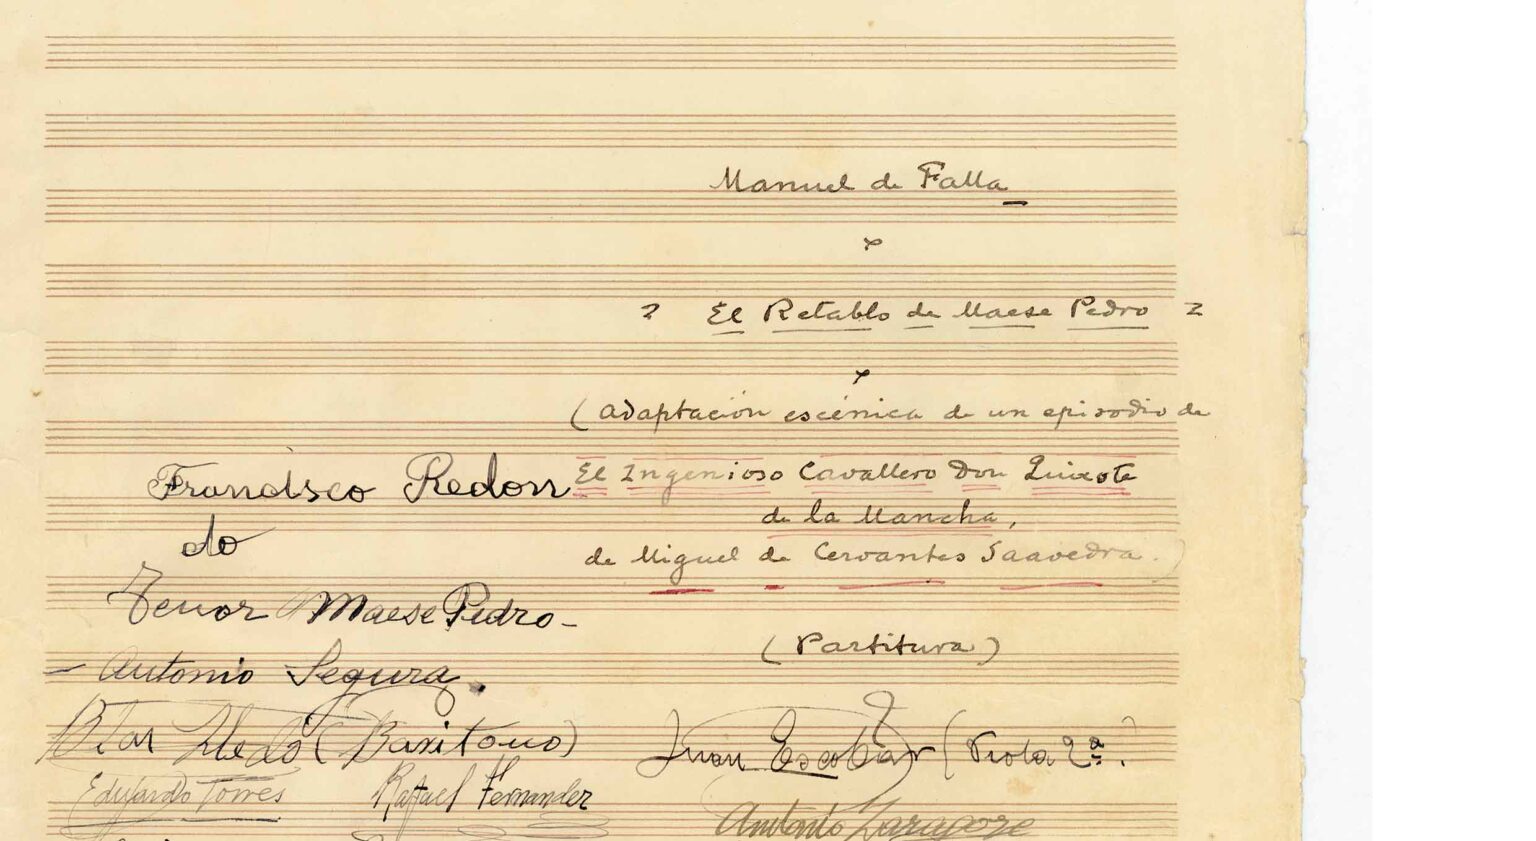 Manuel de Falla
El Retablo de Maese Pedro
(adaptación escénica de un episodio de
El Ingenioso Cavallero Don Quixote
de la Mancha,
de Miguel de Cervantes Saavedra.)
(Partitura)
Francisco Redon
do
Tenor Maese Pedro-
- Antonio Segura.
Lledó (Baritono)
Juan Escobar (Viola 2ª.)
Eduardo Torres
Rafael Fernandez
Antonio